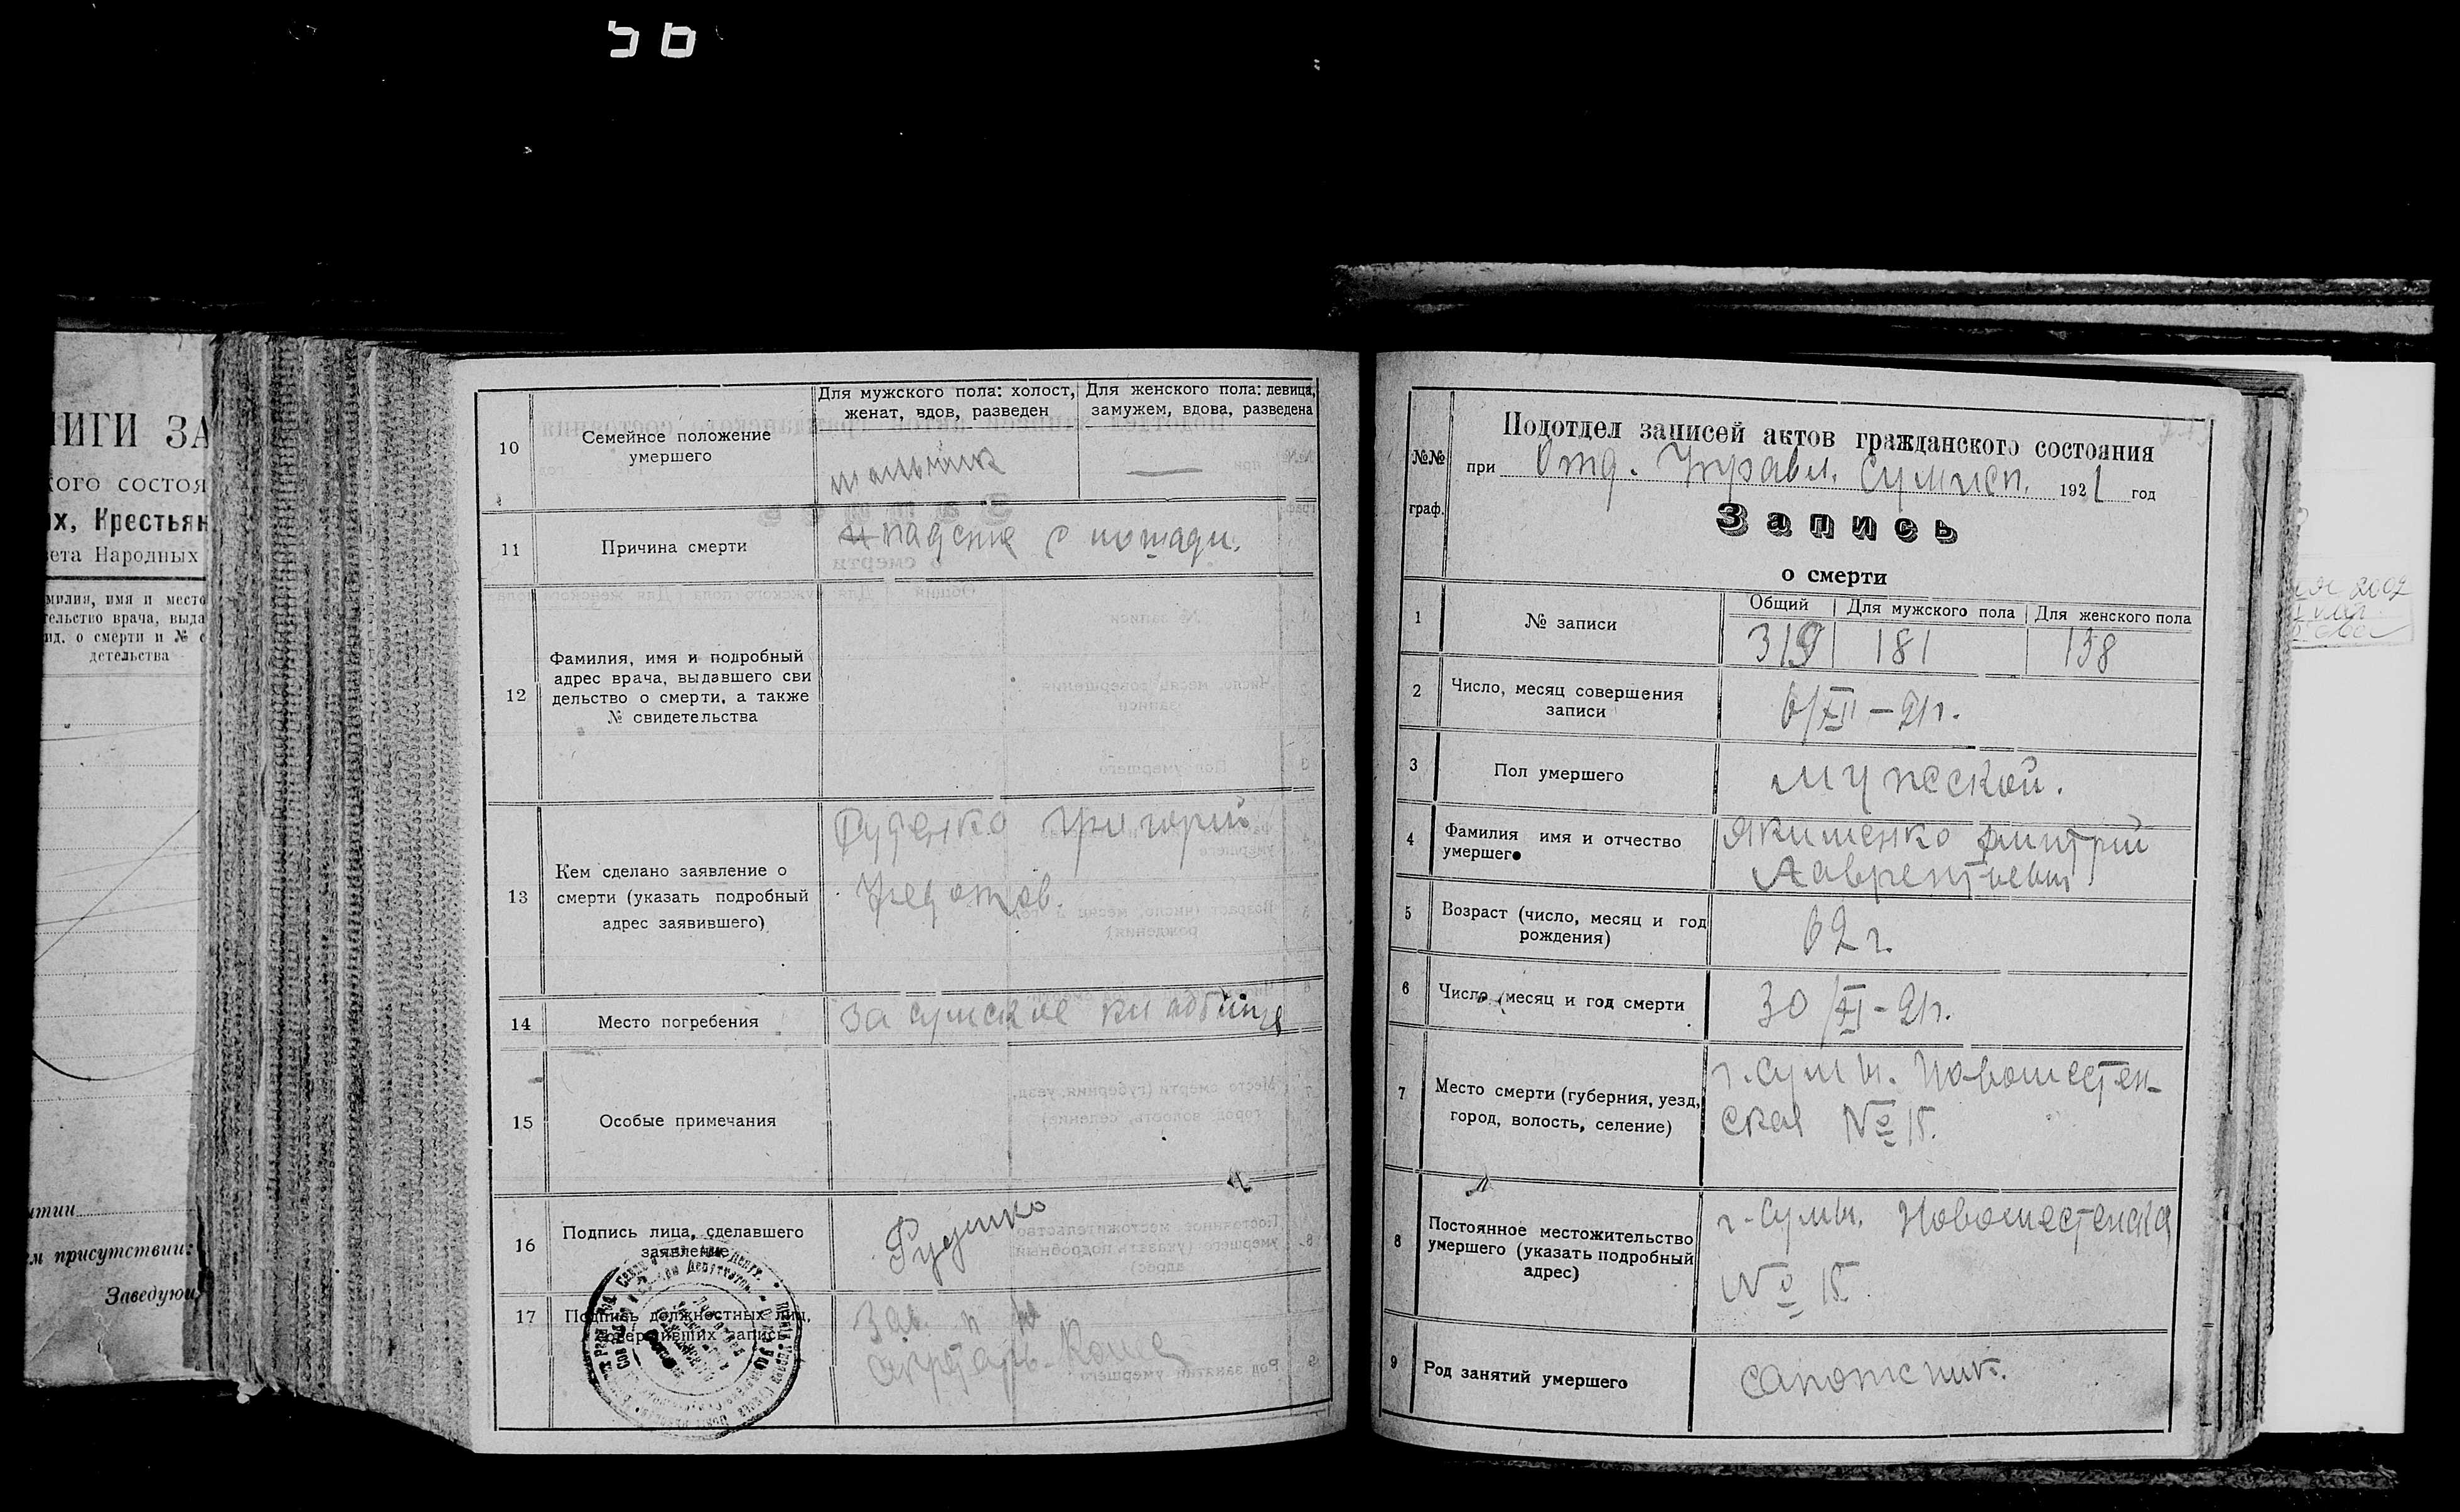 56
НИГИ ЗА
кого состоя
их, Крестьян
вета Народных
милия, имя и место
тельство врача, выда
ид. о смерти и № с
детельства
м присутствии:
Заведую
10
Семейное положение
умершего
Для мужского пола: холост,
женат, вдов, разведен
Для женского пола: девица,
замужем, вдова, разведена
—
11
Причина смерти
падение с лошади.
12
Фамилия, имя и подробный
адрес врача, выдавшего сви
дельство о смерти, а также
№ свидетельства
13
Кем сделано заявление о
смерти (указать подробный
адрес заявившего)
Григорий
Федотов.
14
Место погребения
За сумское кладбище
15
Особые примечания
16
Подпись лица, сделавшего
заявление
17
Подпись должностных лиц,
совершивших запись
Зав. п
секретарь
№№
граф.
Подотдел записей актов гражданского состояния
при Отд. Управл. Сумисп. 1921 год
Запись
о смерти
1
№ записи
Общий
Для мужского пола
Для женского пола
319
181
138
2
Число, месяц совершения
записи
6/XII – 21г.
3
Пол умершего
мужской.
4
Фамилия имя и отчество
умершего
Якименко Дмитрий
Лаврентьевич
5
Возраст (число, месяц и год
рождения)
62 г.
6
Число, месяц и год смерти
30/XI - 21г.
7
Место смерти (губерния, уезд,
город, волость, селение)
г. Сумы. Новоместен-
ская № 15.
8
Постоянное местожительство
умершего (указать подробный
адрес)
г. Сумы. Новоместенская
№ 15.
9
Род занятий умершего
сапожник.